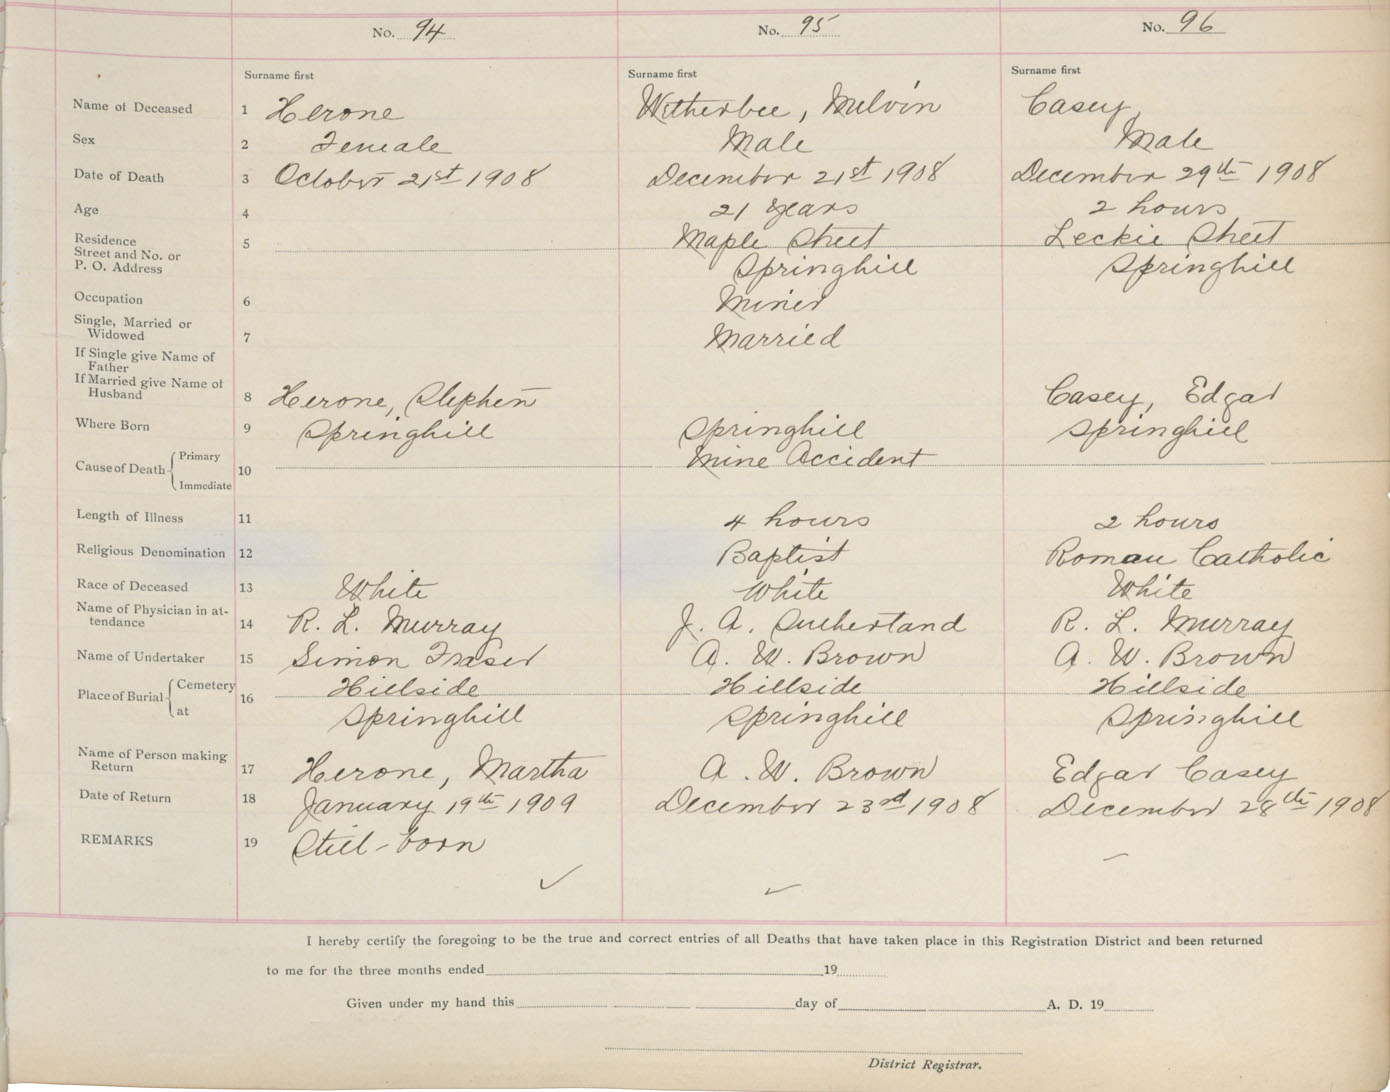 No. 94 No. 95 No. 96
Surname first Surname first Surname first
Name of Deceased 1 Herone Witherbee, Melvin Casey,
Sex 2 Female Male Male
Date of Death 3 October 21st 1908 December 21st 1908 December 29th 1908
Age 4 21 years 2 hours
Residence 5 Maple Street Leckie Street
Street and No. or
P. O. Address Springhill Springhill
Occupation 6 Miner
Single, Married or
Widowed 7 Married
If Single give Name of
Father
If Married give Name of
Husband 8 Herone, Stephen Casey, Edgar
Where Born 9 Springhill Springhill Springhill
Cause of Death Primary 10 Mine Accident
Immediate
Length of Illness 11 4 hours 2 hours
Religious Denomination 12 Baptist Roman Catholic
Race of Deceased 13 White White White
Name of Physician in at-
tendance 14 R. L. Murray J. A. Sutherland R. L. Murray
Name of Undertaker 15 Simon Fraser A. W. Brown A. W. Brown
Place of Burial Cemetery 16 Hillside Hillside Hillside
at Springhill Springhill Springhill
Name of Person making
Return 17 Herone, Martha A. W. Brown Edgar Casey
Date of Return 18 January 19th 1909 December 23rd 1908 December 28th 1908
REMARKS 19 Still-born
I hereby certify the foregoing to be the true and correct entries of all Deaths that have taken place in this Registration District and been returned
to me for the three months ended 19
Given under my hand this day of A. D. 19
District Registrar.